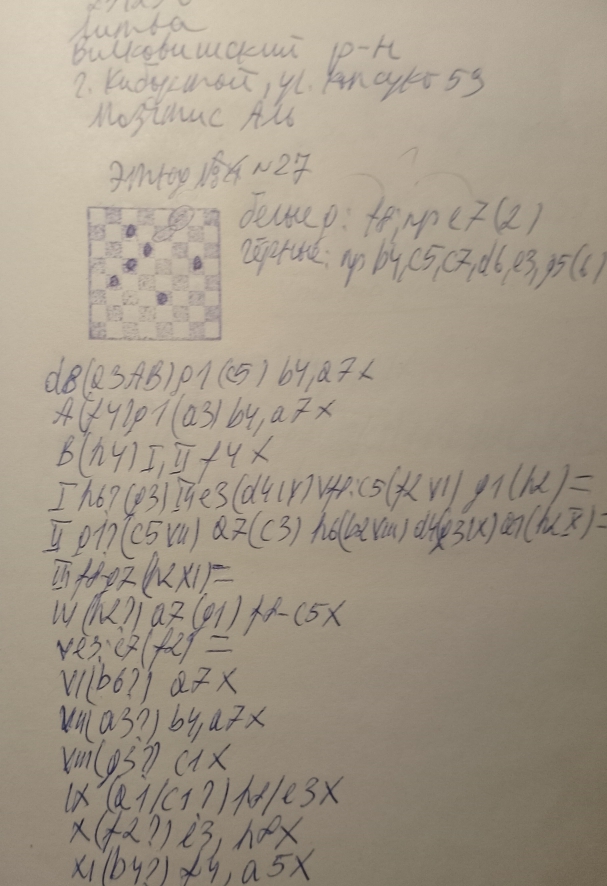 Литва
Вилковишский р-н
г. Кибартай, ул. 53
Мозетис Аль
Этюд №27
белые: f8, пр e7(2)
чёрные: пр b4, c5, c7, d6, e3, g5(6)
d8(a3AB)g1(c5) b4, a7x
A(f4)g1(a3) b4, a7x
B(h4) I, II f4x
I h6?(g3) III e3(d4 IV) V f8:c5(f2 VI) g1(h2)=
II g1?(c5 VII) a7(c3) h6(b2 VIII) d4(g3 IX) a7(h2 X)=
III f8-g7(h2 XI)=
IV(h2?) a7(g1) f8-c5x
V e3:c7(f2)=
VI(b6?) a7x
VII(a3?) b4, a7x
VIII(g3?) c1x
IX (a1/c1?) h8/e3x
X(f2?) e3, h8x
XI(b4?) f4, a5x